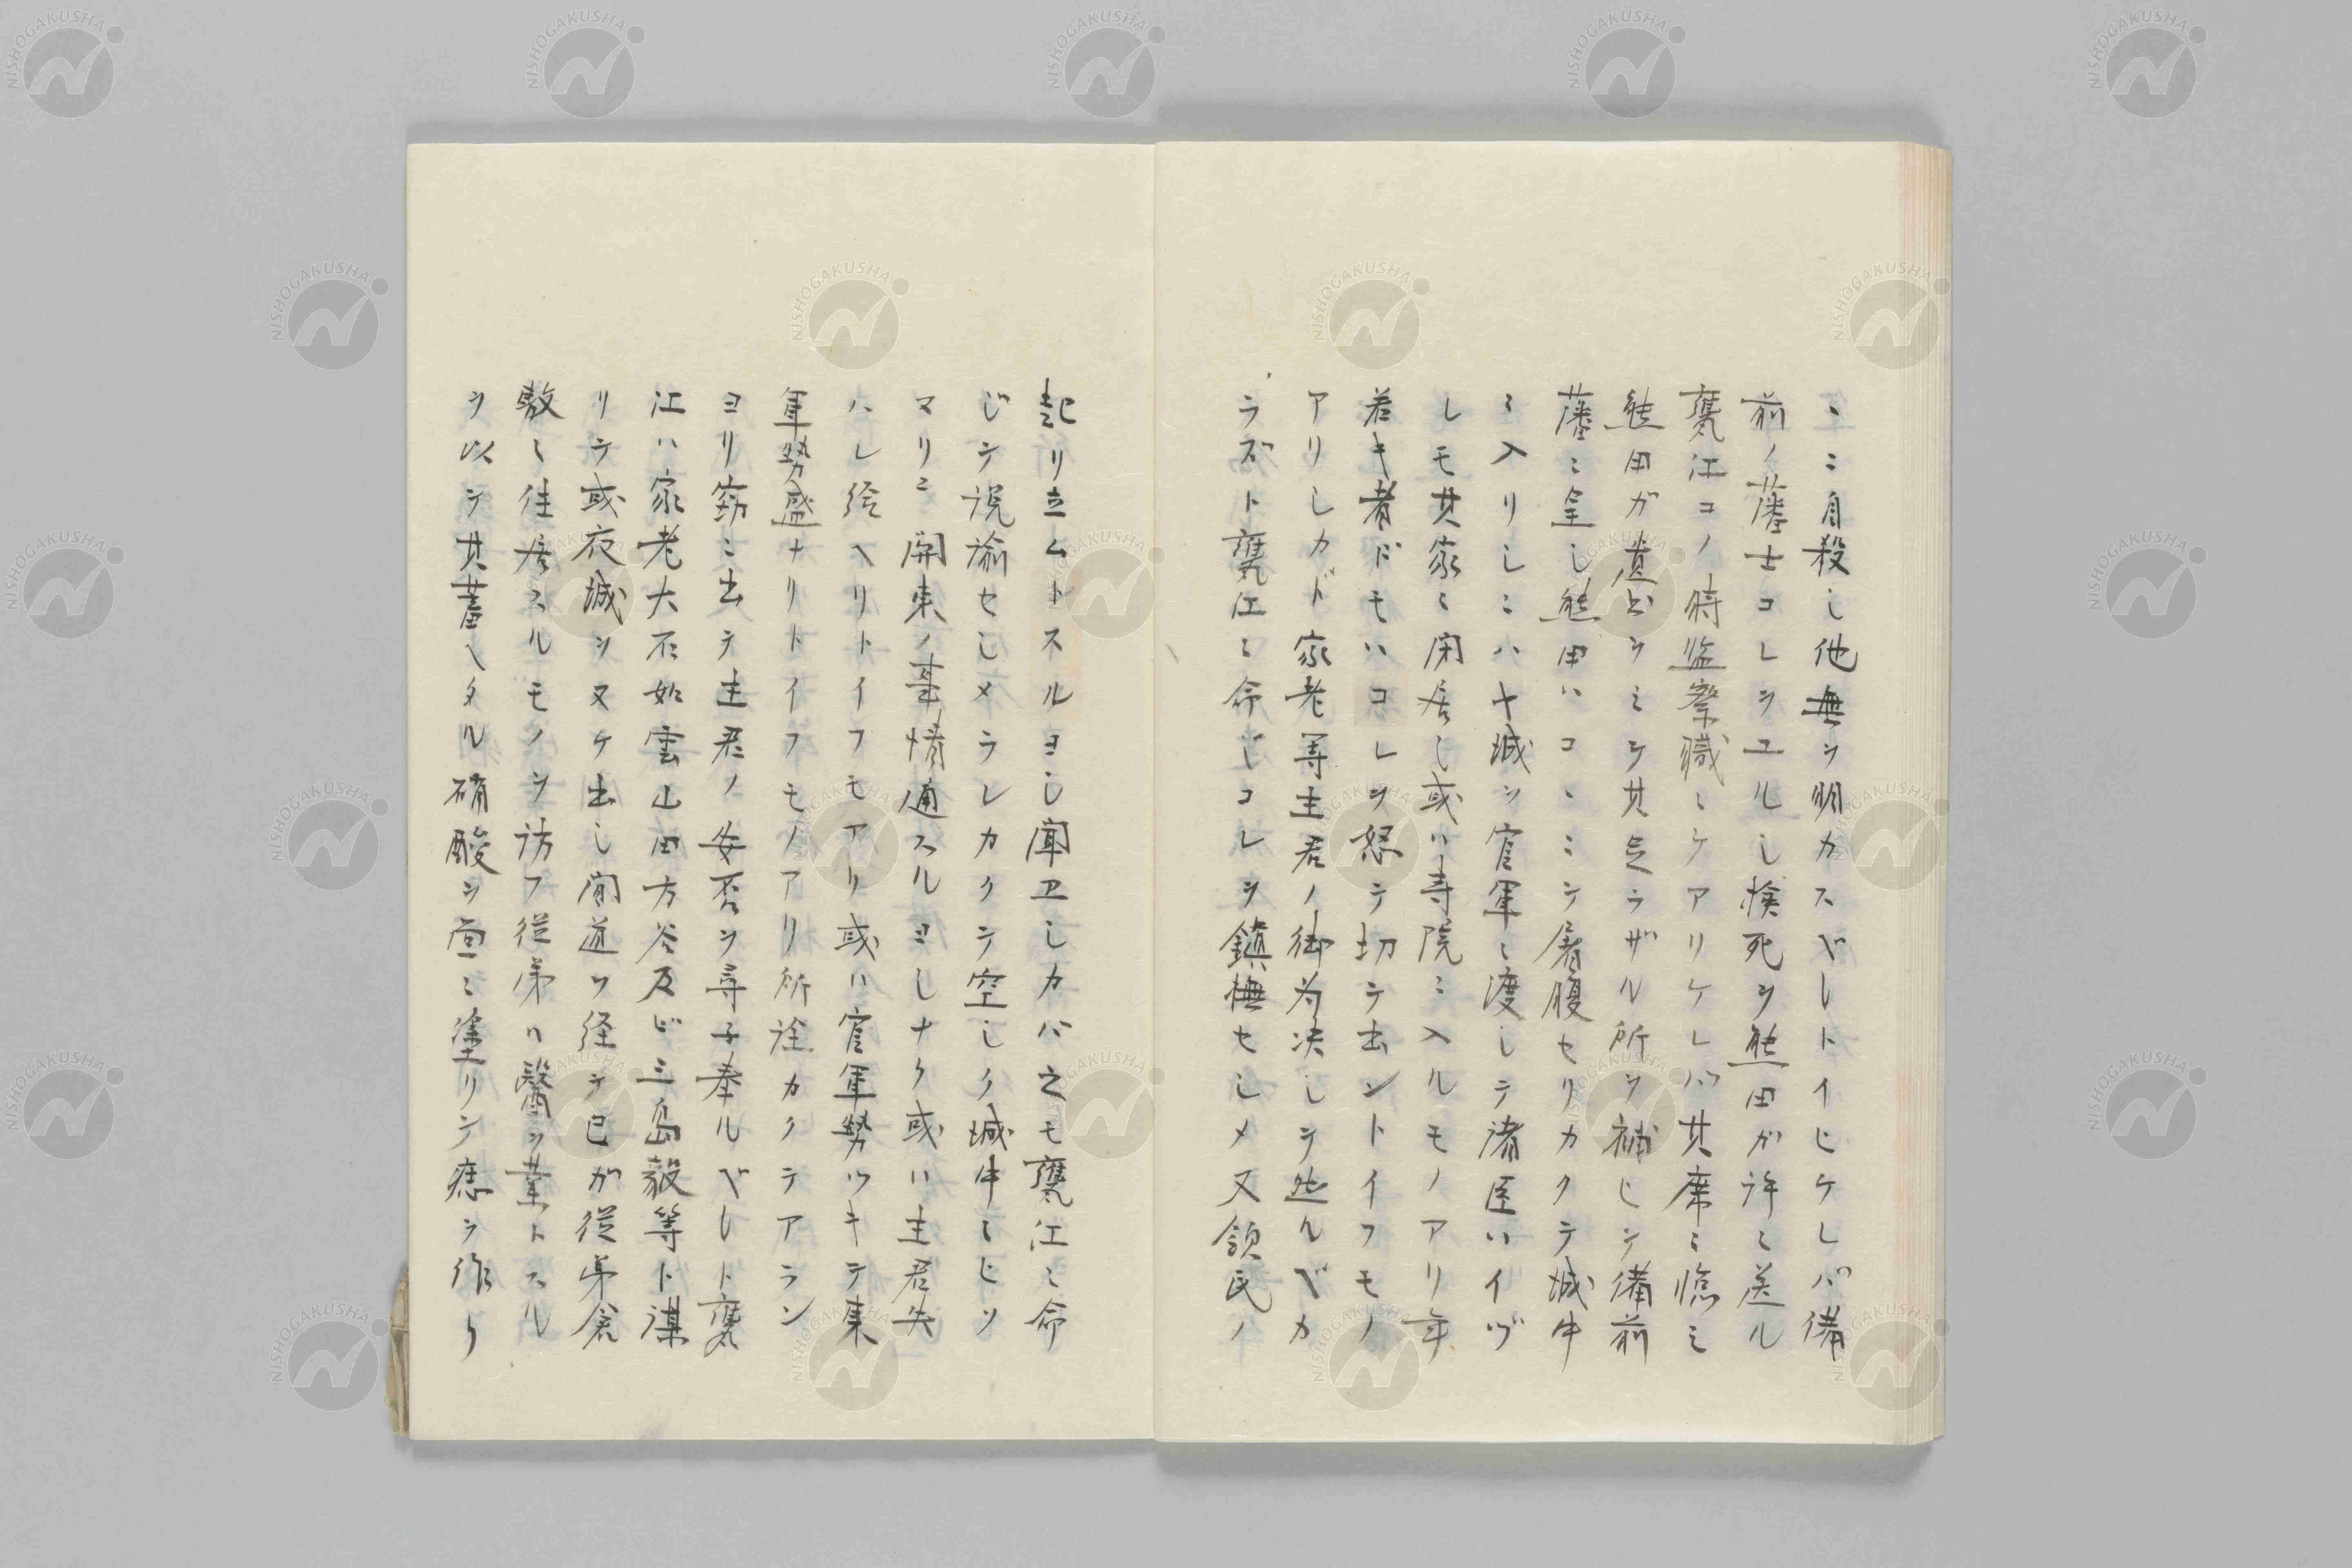 ヽニ自殺シ他無ヲ明カスベシトイヒケレバ備
前ノ藩士コレヲユルシ検死ヲ熊田ガ許ニ送ル
甕江コノ時監察職ニケアリケレバ其席ニ臨ミ
熊田ガ遺書ヲミテ其足ラザル所ヲ補ヒテ備前
藩ニ呈シ熊田ハコヽニテ屠腹セリカクテ城中
ニ入リシニハヤ城ヲ官軍ニ渡シテ諸臣ハイヅ
レモ其家ニ閉居シ或ハ寺院ニ入ルモノアリ年
若キ者ドモハコレヲ怒テ切テ出ントイフモノ
アリシカド家老等主君ノ御為決シテ然ルベカ
ラズト甕江ニ命ジコレヲ鎮撫セシメ又領民ノ
起リ立ムトスルヨシ聞エシカバ之モ甕江ニ命
ジテ説諭セシメラレカクテ空シク城中ニヒソ
マリニ関東ノ事情通スルヨシナク或ハ主君失
ハレ給ヘリトイフモアリ或ハ官軍勢ツキテ東
軍勢盛ナリトイフモノアリ所詮カクテアラン
ヨリ窃ニ出テ主君ノ安否ヲ尋子奉ルベシト甕
江ハ家老大石如雲山田方谷及ビ三島毅等ト謀
リテ或夜城ヲヌケ出シ間道ヲ経テ己が従弟倉
敷ニ住居スルモノヲ訪フ従弟ハ醫ヲ業トスル
ヲ以テ其蓄ヘタル硝酸ヲ面ニ塗リテ痣ヲ作リ